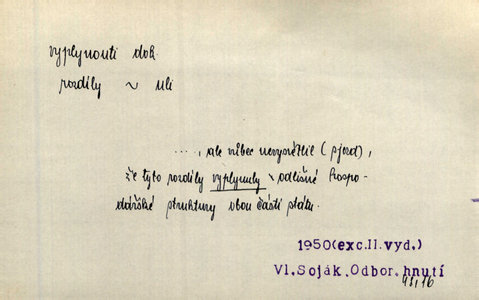 vyplynouti dok.
rozdíly ~ uli
...., ale vůbec nevysvětlil (sjezd),
že tyto rozdíly vyplynuly z odlišné hospo-
dářské struktury obou částí státu.
1950(exc.II.vyd.)
Vl.Soják.Odbor.hnutí
41,16